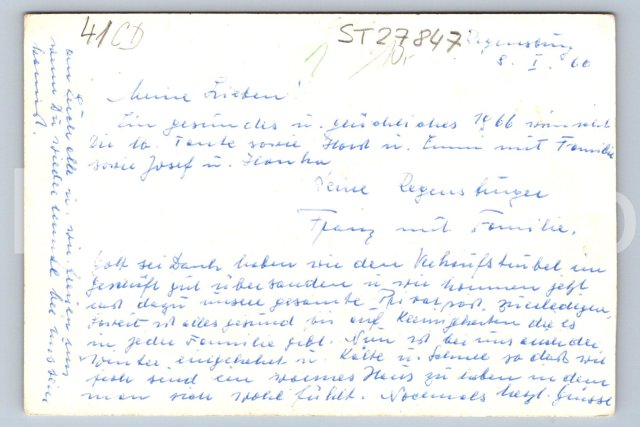 41 CD
ST27847
Regensburg
8. I. 66
Meine Lieben!
Ein gesundes u. glückliches 1966 wünscht
Dir lb. Tante sowie Horst u. Emmi mit Familie
sowie Josef u. Hanka
Deine Regensburger
Franz mit Familie.
Gott sei Dank haben wir den Verkaufstrubel im
Geschäft gut überstanden u. wir kommen jetzt
erst dazu unsere gesamte Privatpost zu erledigen,
Soweit ist alles gesund bis auf Kleinigkeiten die es
in jeder Familie gibt. Nun ist bei uns auch der
Winter eingekehrt u. Kälte u. Schnee so daß wir
froh sind ein warmes Haus zu haben in dem
man sich wohl fühlt. Nochmals herzl. Grüsse
an Euch alle u. wir freuen uns
wenn Du wieder einmal bei uns sein
kannst.